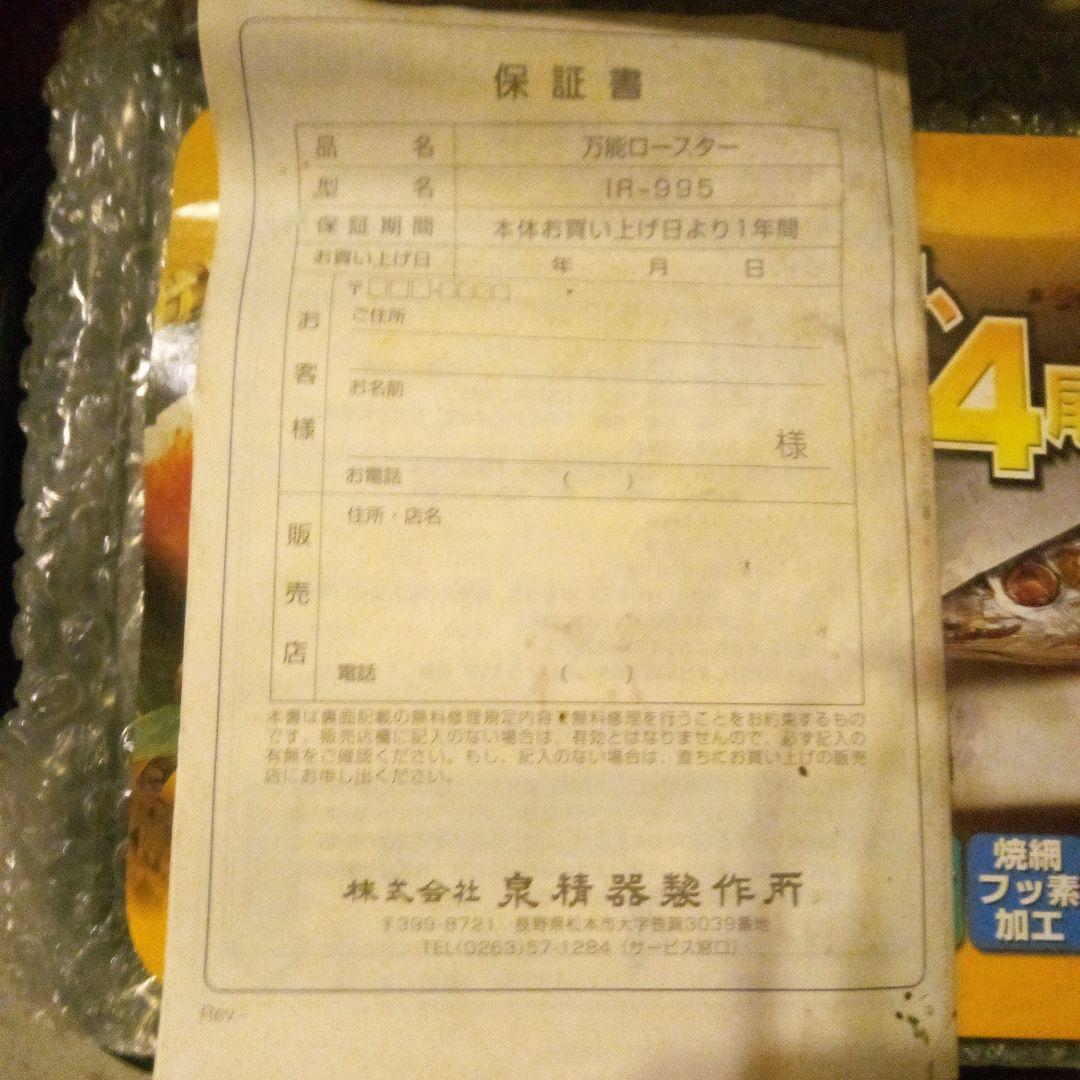 保証書
品名 万能ロースター
型名 IR-995
保証期間 本体お買い上げ日より1年間
お買い上げ日 年 月 日
お客様
〒□□□-□□□□
ご住所
お名前
様
お電話 ( )
販売店
住所・店名
電話 ( )
本書は裏面記載の無料修理規定内容で無料修理を行うことをお約束するもの
です。販売店欄に記入のない場合は、有効とはなりませんので、必ず記入の
有無をご確認ください。もし、記入のない場合は、直ちにお買い上げの販売
店にお申し出ください。
株式会社 泉精器製作所
〒399-8721 長野県松本市大字笹賀3039番地
TEL(0263)57-1284 (サービス窓口)
Rev -
4尾
焼網
フッ素
加工